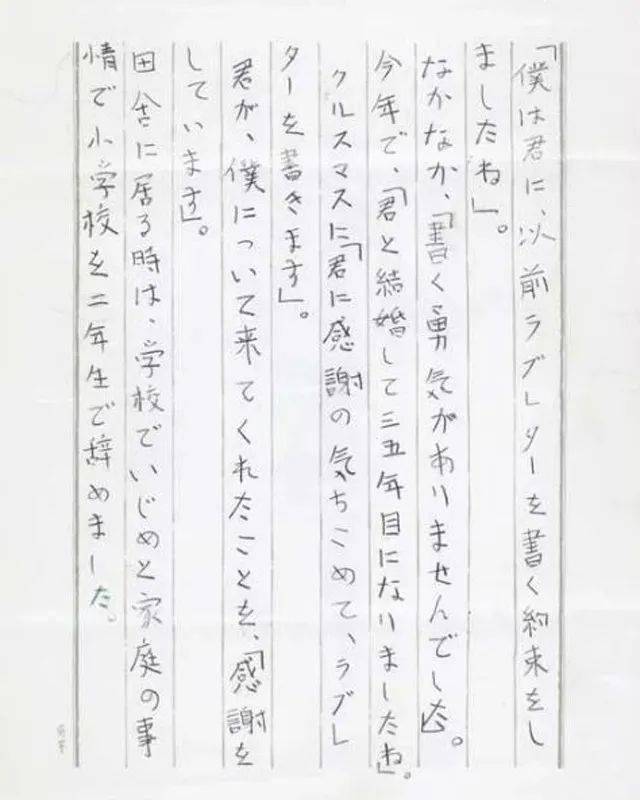 「僕は君に、以前ラブレターを書く約束をし
ましたね」。
なかなか、「書く勇気がありませんでした」。
今年で、「君と結婚して三五年目になりましたね」。
クルスマスに「君に感謝の気ちこめて、ラブレ
ターを書きます」。
君が、僕について来てくれたことを、「感謝を
しています」。
田舎に居る時は、学校でいじめと家庭の事
情で小学校を二年生で辞めました。